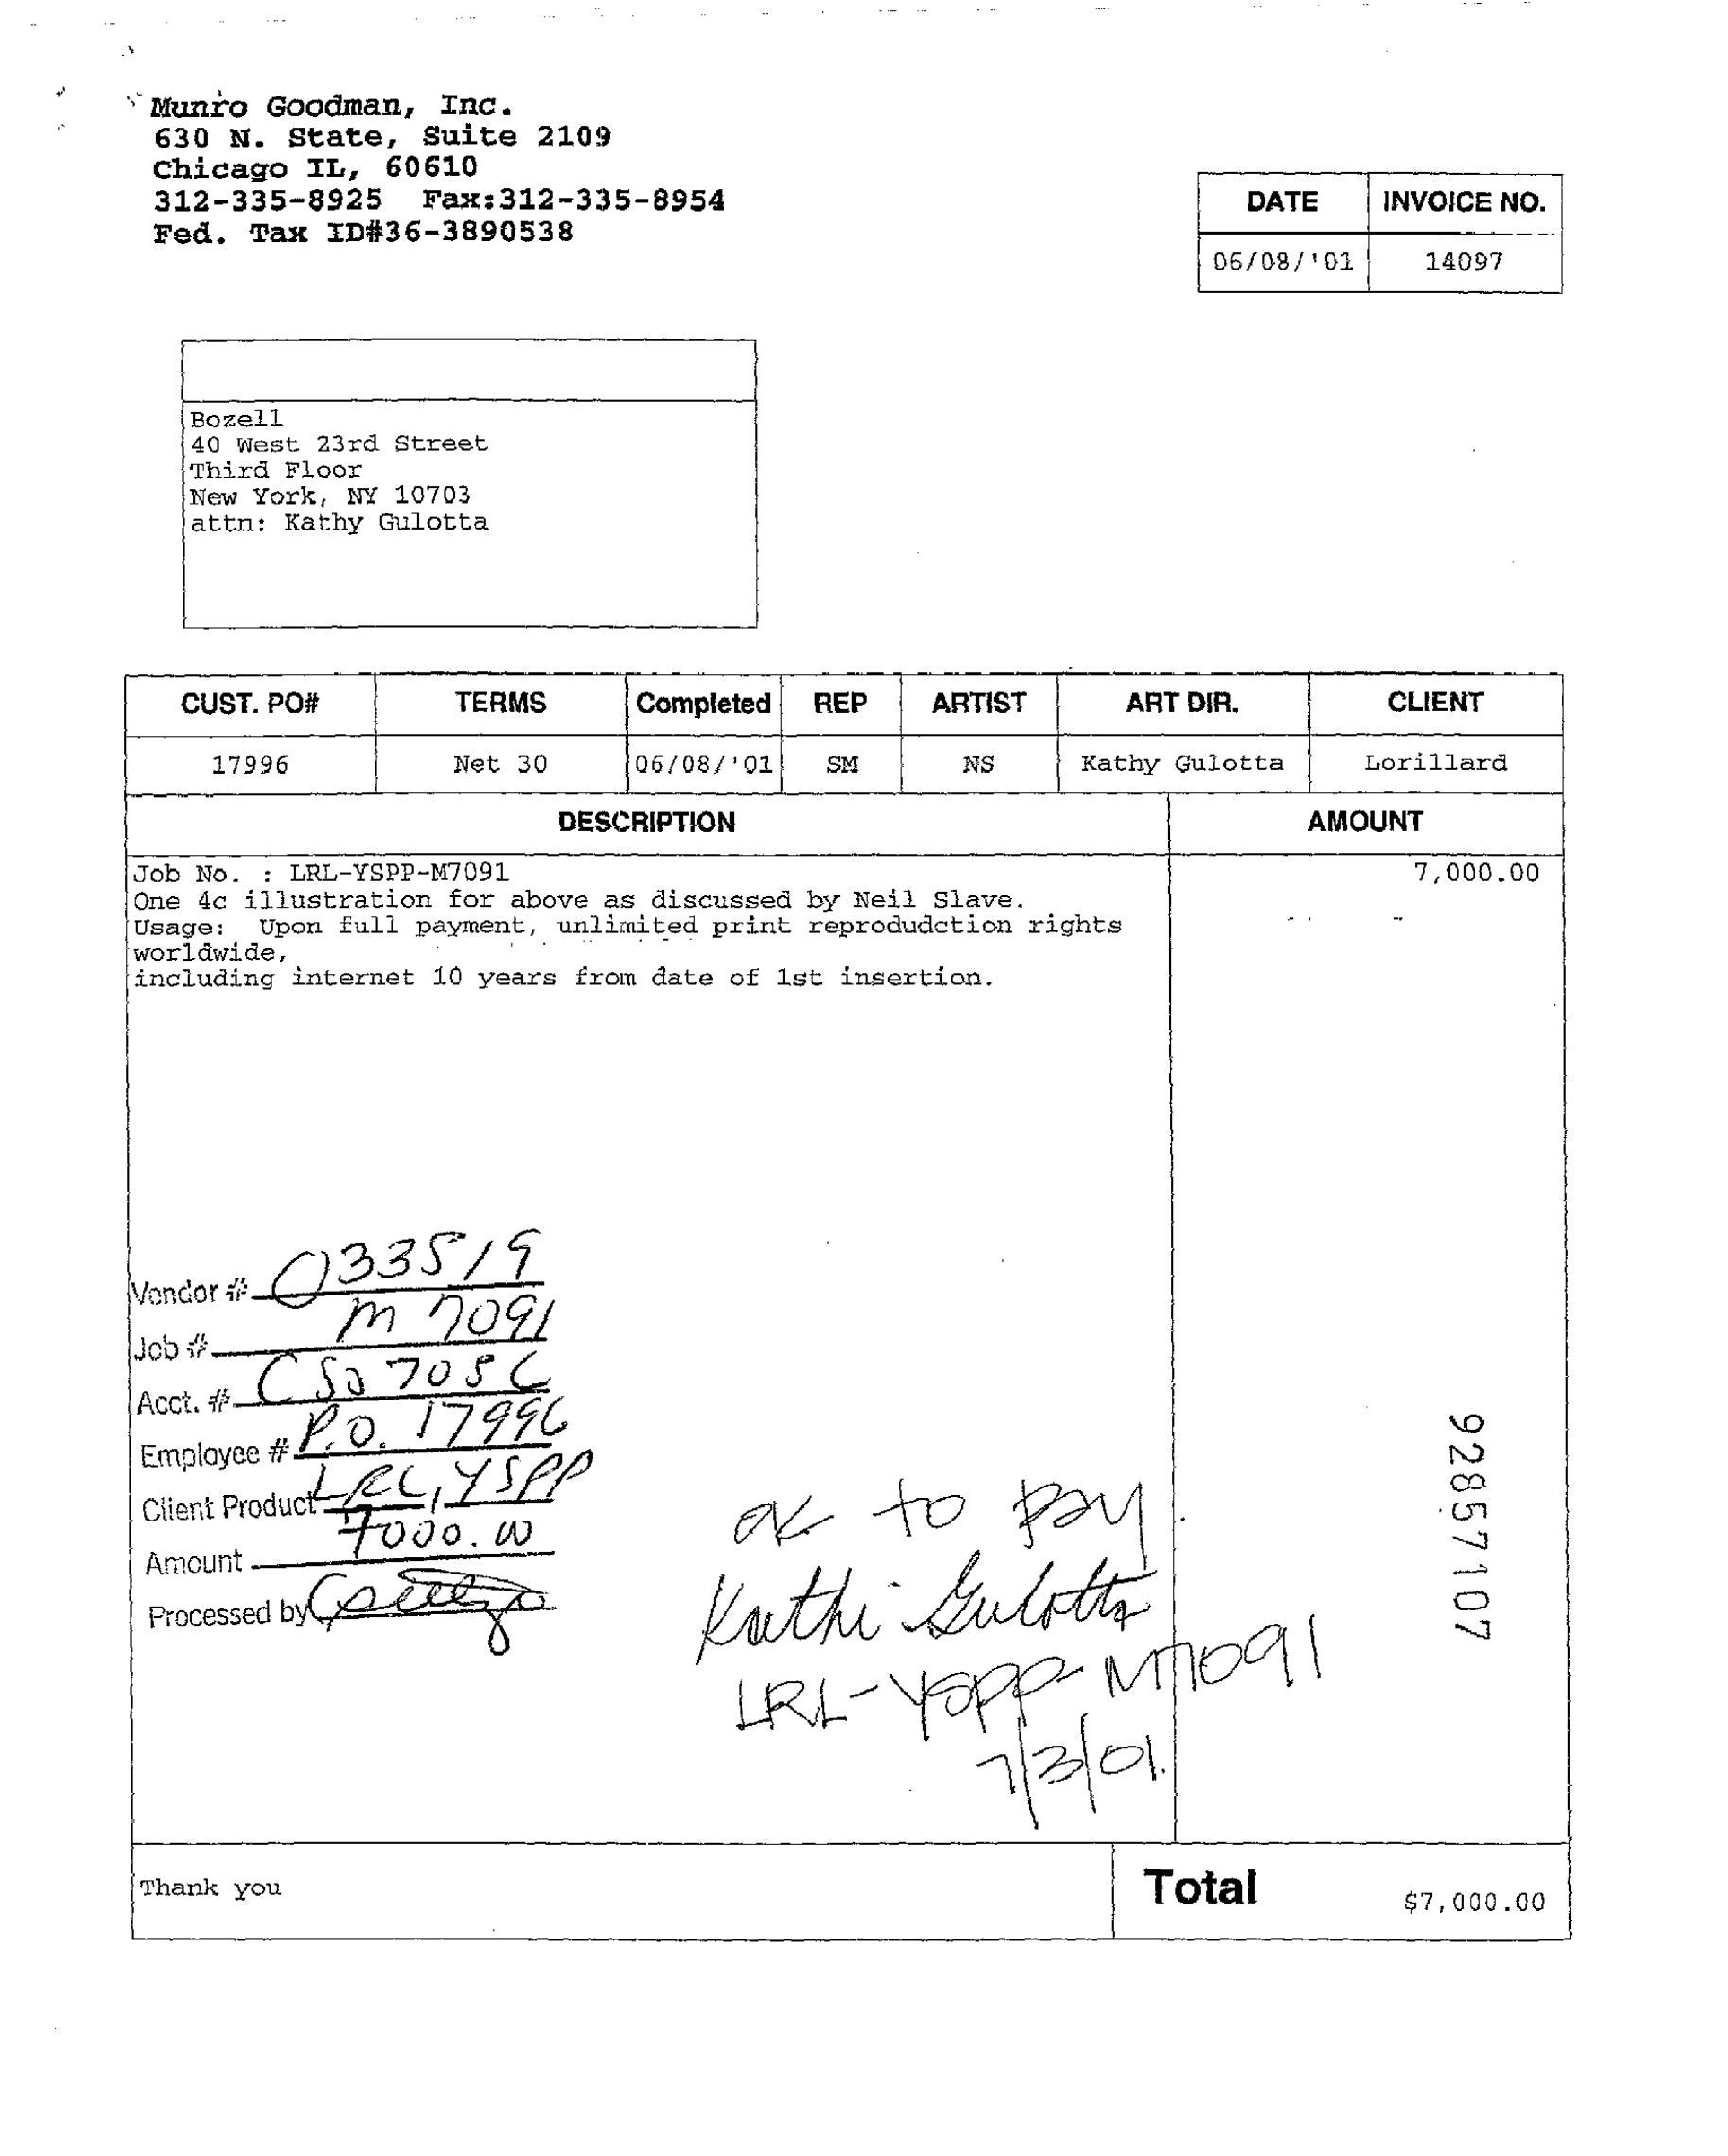 Munro Goodman, Inc.
630 N. State, Suite 2109
Chicago IL, 60610
312-335-8925 Fax:312-335-8954
Fed. Tax ID#36-3890538
DATE INVOICE NO.
06/08/'01 14097
Bozell
40 West 23rd Street
Third Floor
New York, NY 10703
attn: Kathy Gulotta
CUST. PO# TERMS Completed REP ARTIST ART DIR. CLIENT
17996 Net 30 06/08/'01 SM NS Kathy Gulotta Lorillard
DESCRIPTION AMOUNT
Job No. : LRL-YSPP-M7091 7,000.00
One 4c illustration for above as discussed by Neil Slave.
Usage: Upon full payment, unlimited print reprodudction rights
worldwide,
including internet 10 years from date of 1st insertion.
Vendor # 033519
Job # M 7091
Acct. #
Employee # P.O. 17996
Client Product LRL, YSPP
Amount 7000.00
Processed by
ok to pay
Kathi Gulotta
LRL-YSPP-M7091
7/3/01.
92857107
Thank you Total $7,000.00